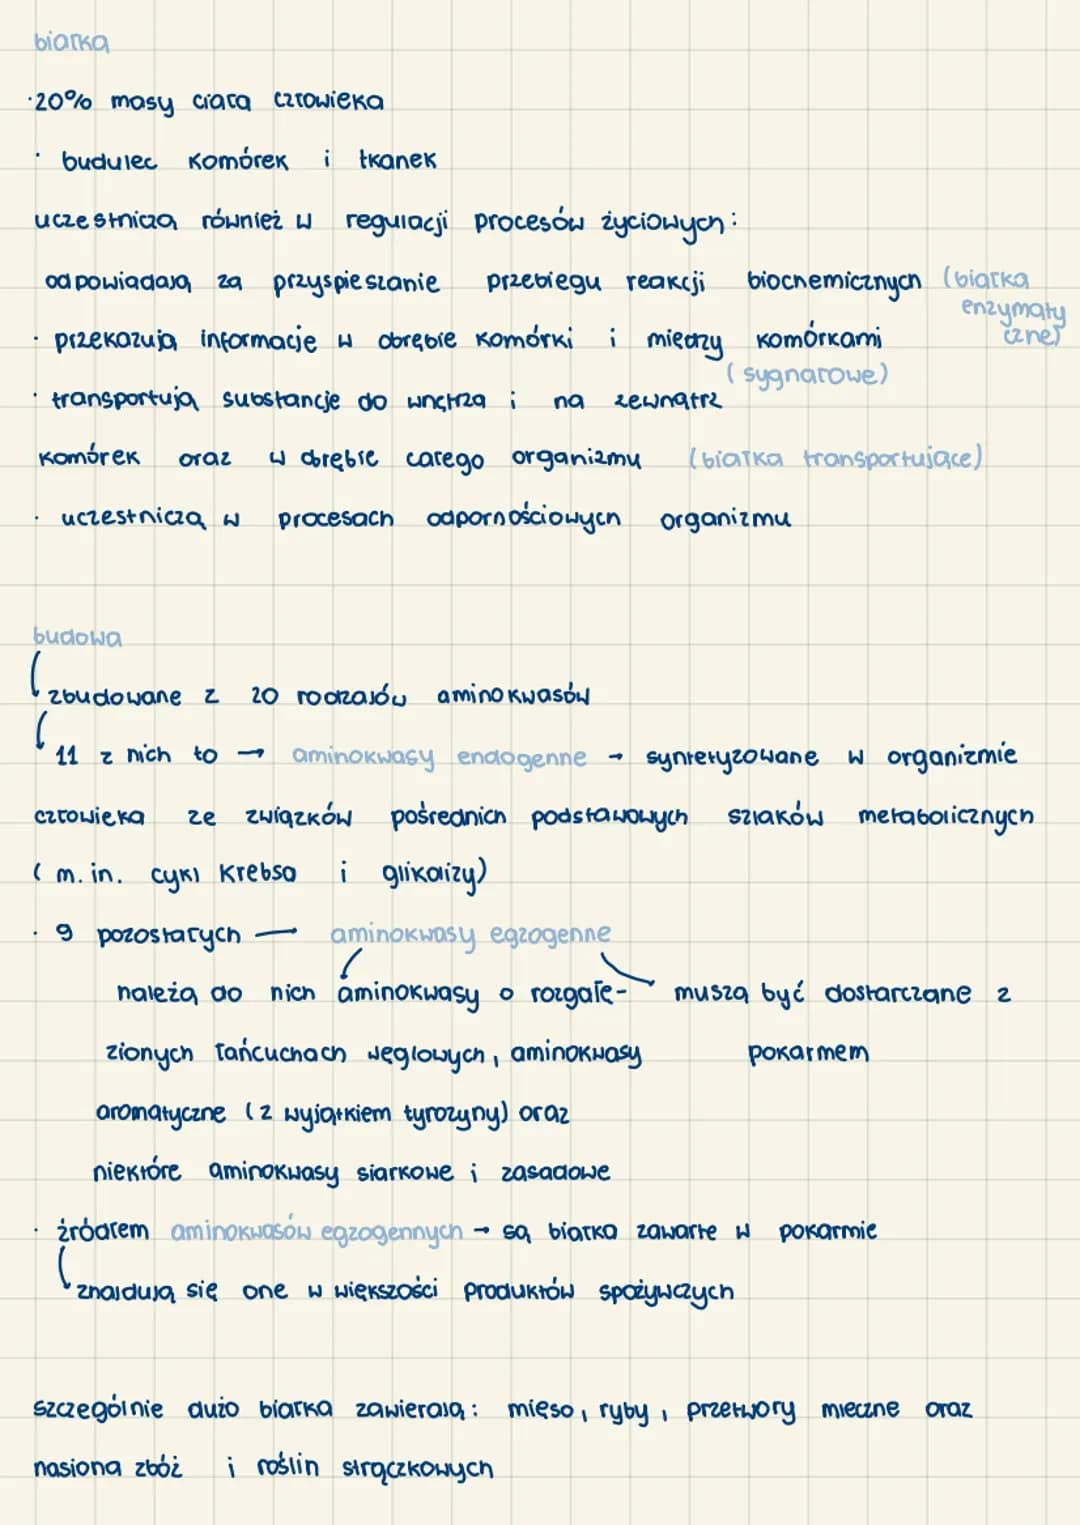 białka
·20% masy ciała człowieka
· budulec komórek i tkanek
uczestniczą również w regulacji procesów życiowych:
odpowiadają za przyspieszanie przebiegu reakcji biochemicznych (białka enzymatyczne)
· przekazują informacje w obrębie komórki i między komórkami
(sygnałowe)
· transportują substancje do wnętrza i na zewnątrz
komórek oraz w obrębie całego organizmu (białka transportujące)
· uczestniczą w procesach odpornościowych organizmu
budowa
zbudowane z 20 rodzajów aminokwasów
11 z nich to → aminokwasy endogenne → syntetyzowane w organizmie
człowieka ze związków pośrednich podstawowych szlaków metabolicznych
(m.in. cykl Krebsa i glikolizy)
· 9 pozostałych — aminokwasy egzogenne
należą do nich aminokwasy o rozgałę- muszą być dostarczane z
zionych łańcuchach węglowych, aminokwasy pokarmem
aromatyczne (z wyjątkiem tyrozyny) oraz
niektóre aminokwasy siarkowe i zasadowe
· źródłem aminokwasów egzogennych → są białka zawarte w pokarmie
znajdują się one w większości produktów spożywczych
szczególnie dużo białka zawierają: mięso, ryby, przetwory mleczne oraz
nasiona zbóż i roślin strączkowych